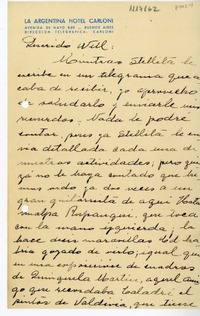 LA ARGENTINA HOTEL CARLONI
AVENIDA DE MAYO 860 - BUENOS AIRES
DIRECCION TELEGRAFICA: CARLONI
Querido Will:
Mientras Stellita le
escribe en un telegrama que a-
caba de recibir, yo aprovecho
de saludarlo y enviarle mis
recuerdos. Nada le podré
contar, pues ya Stellita le en-
vía detallada cada una de
nuestras actividades; pero que
yá no le haya contado que he-
mos oído ya dos veces a un
gran guitarrista de aquí
Yupanqui, que toca
con la mano izquierda, y la
hace decir maravillas. Ud. ha-
bría gozado de verlo; igual que
en una exposición de cuadros
de Quinquela Martín, aquel ami-
go que recordaba
pintor de Valdivia, que tiene